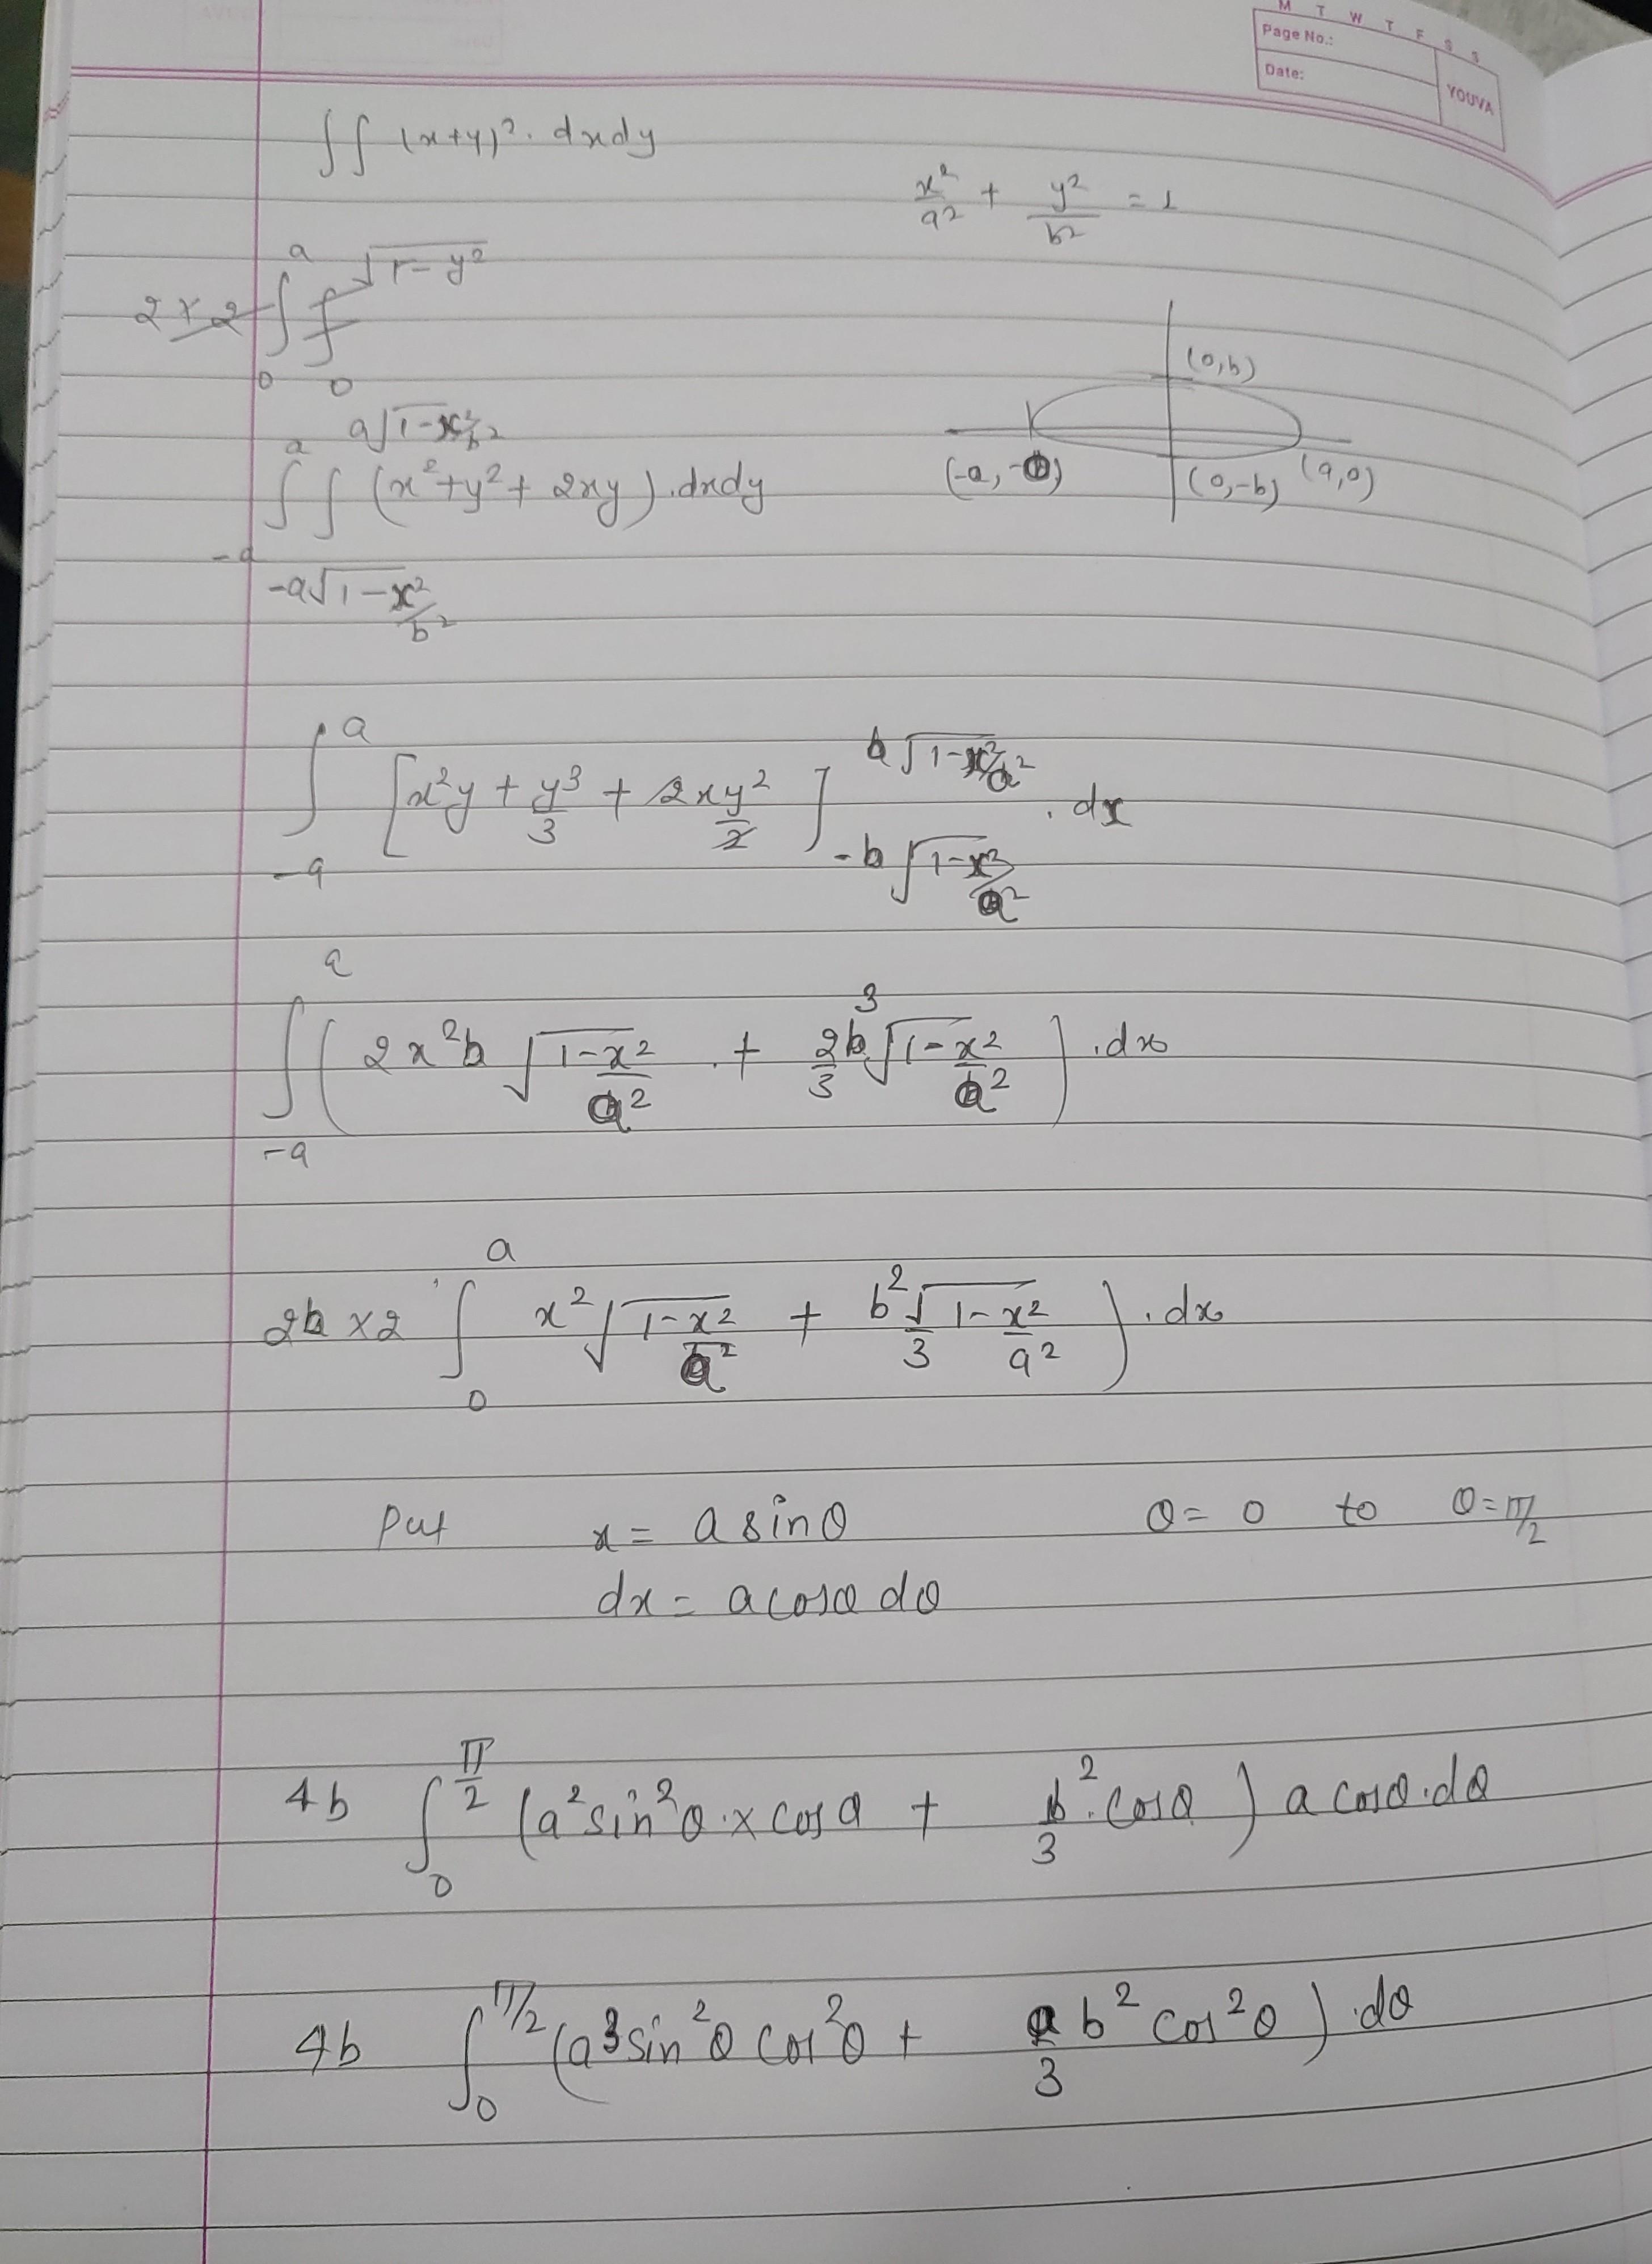 M T W T F S S
Page No.:
Date:
YOUVA
∫∫ (x+y)². dxdy
x²/a² + y²/b² = 1
2×2 ∫₀^a ∫₀^√(1-y²)
(0,b)
(-a, 0)
(0,-b)
(a,0)
∫_{-a}^{a} ∫_{-a√(1-x²/b²)}^{a√(1-x²/b²)} (x²+y²+2xy).dxdy
∫_{-a}^{a} [x²y + y³/3 + 2xy²/2]_{-b√(1-x²/a²)}^{b√(1-x²/a²)} . dx
∫_{-a}^{a} (2x²b √(1-x²/a²) + 2b³/3 √(1-x²/a²)) .dx
2b×2 ∫₀^a x²√(1-x²/a²) + b²/3 √(1-x²/a²)) .dx
Put x = a sinθ θ= 0 to θ=π/2
dx = a cosθ dθ
4b ∫₀^{π/2} (a² sin²θ.× cosθ + b²/3 . cosθ) a cosθ.dθ
4b ∫₀^{π/2} (a³ sin²θ cos²θ + a/3 b² cos²θ) .dθ